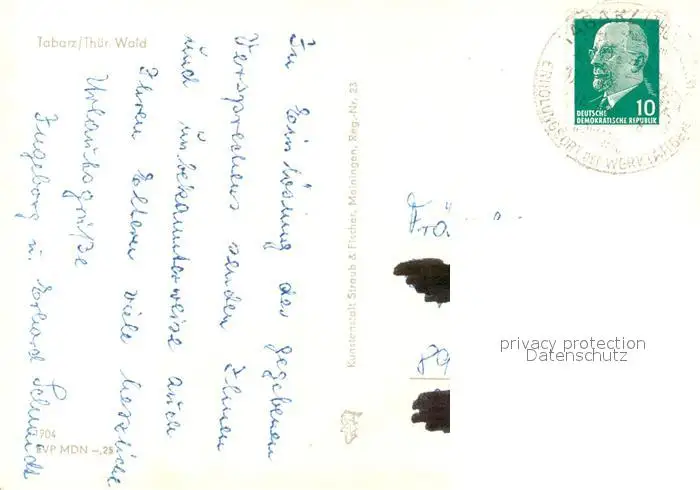 Tabarz/Thür. Wald
In Einlösung des gegebenen
Versprechens senden Ihnen
und unbekannterweise auch
Ihren Eltern viele herzliche
Urlaubsgrüße
Ingeborg u. Erhard
1904
EVP MDN -,25
Kunstanstalt Straub & Fischer, Meiningen, Reg.-Nr. 23
TABARZ
ERHOLUNGSORT DER WERKTÄTIGEN
10
DEUTSCHE
DEMOKRATISCHE REPUBLIK
Frä.
89
privacy protection
Datenschutz